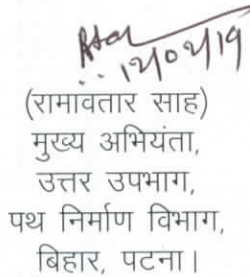 12/02/19
(रामावतार साह)
मुख्य अभियंता,
उत्तर उपभाग,
पथ निर्माण विभाग,
बिहार, पटना।